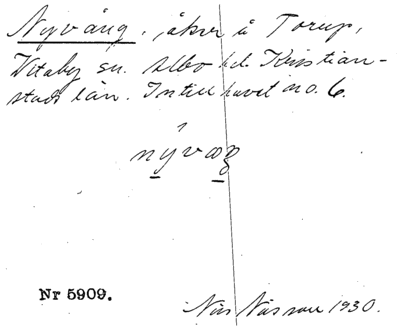 Nyvång, åker å Torup,
Vitaby sn. Albo hd. Kristian-
stads län. Intill havet no. 6.
nývaŋ
Nr 5909.
Nils Nilsson 1930.